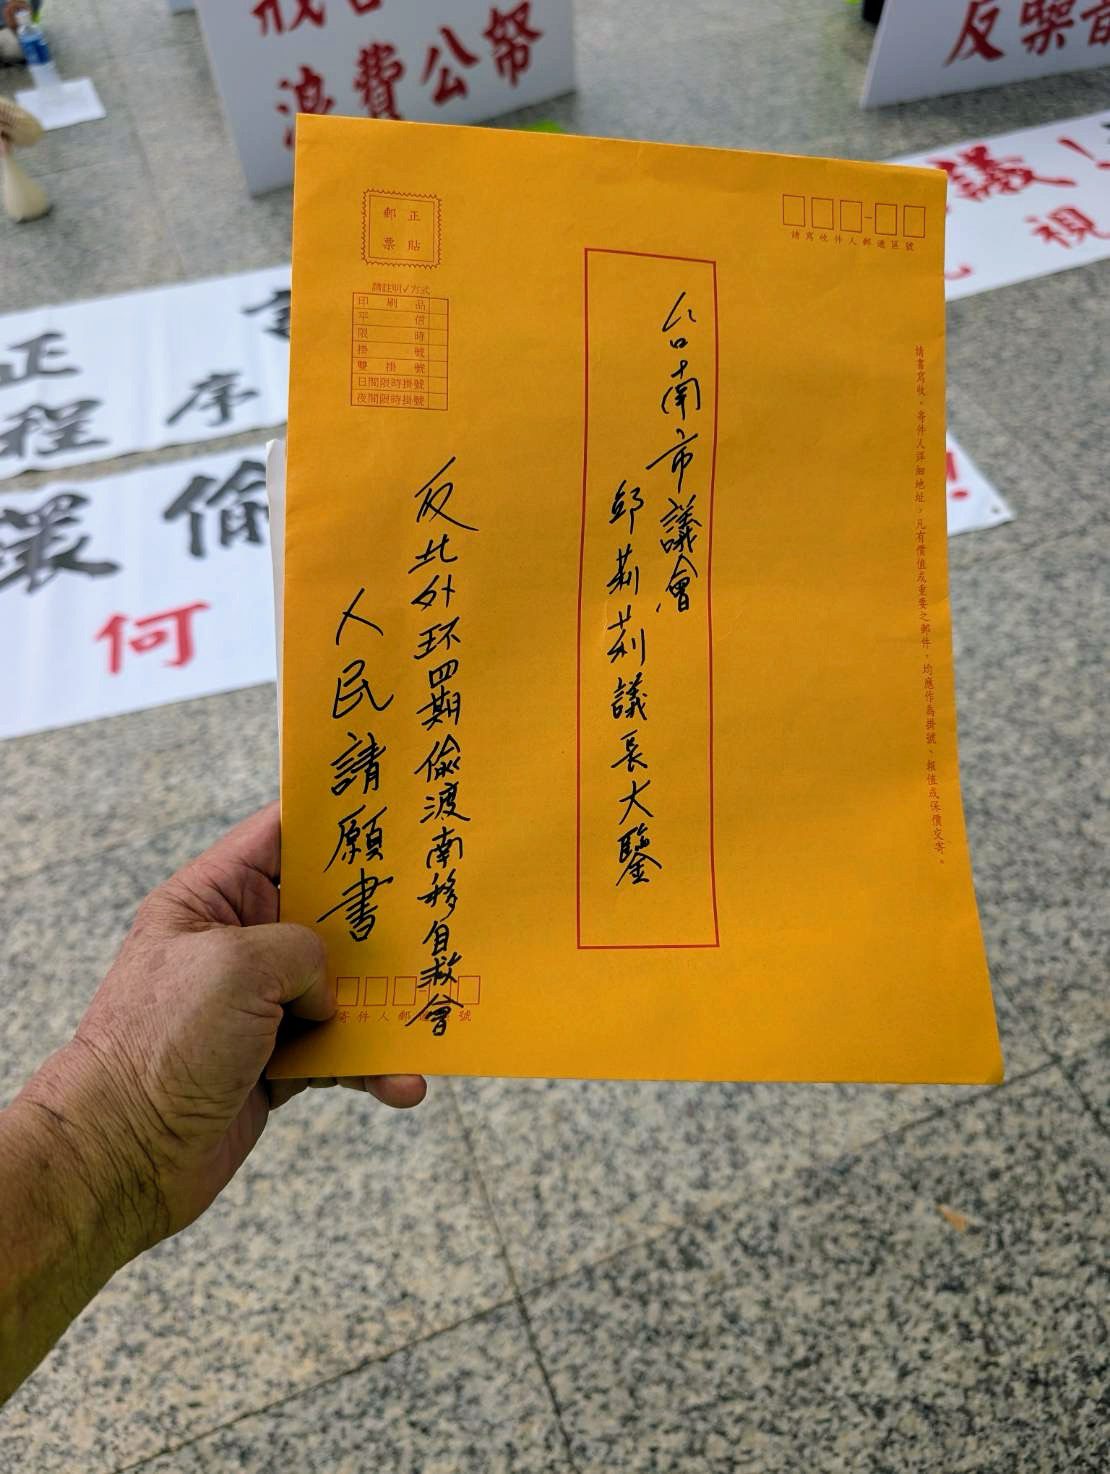 浪費公帑
反
議！
視
正
程序
環偷
何
正貼
郵票
請註明✓方式
印刷品
平信
限時
掛號
雙掛號
日間限時掛號
夜間限時掛號
請寫收件人郵遞區號
請書寫收、寄件人詳細地址，凡有價值或重要之郵件，均應作為掛號、報值或保價交寄。
台南市議會
邱莉莉議長大鑒
反北外环四期偷渡南移自救會
人民請願書
寄件人郵 號